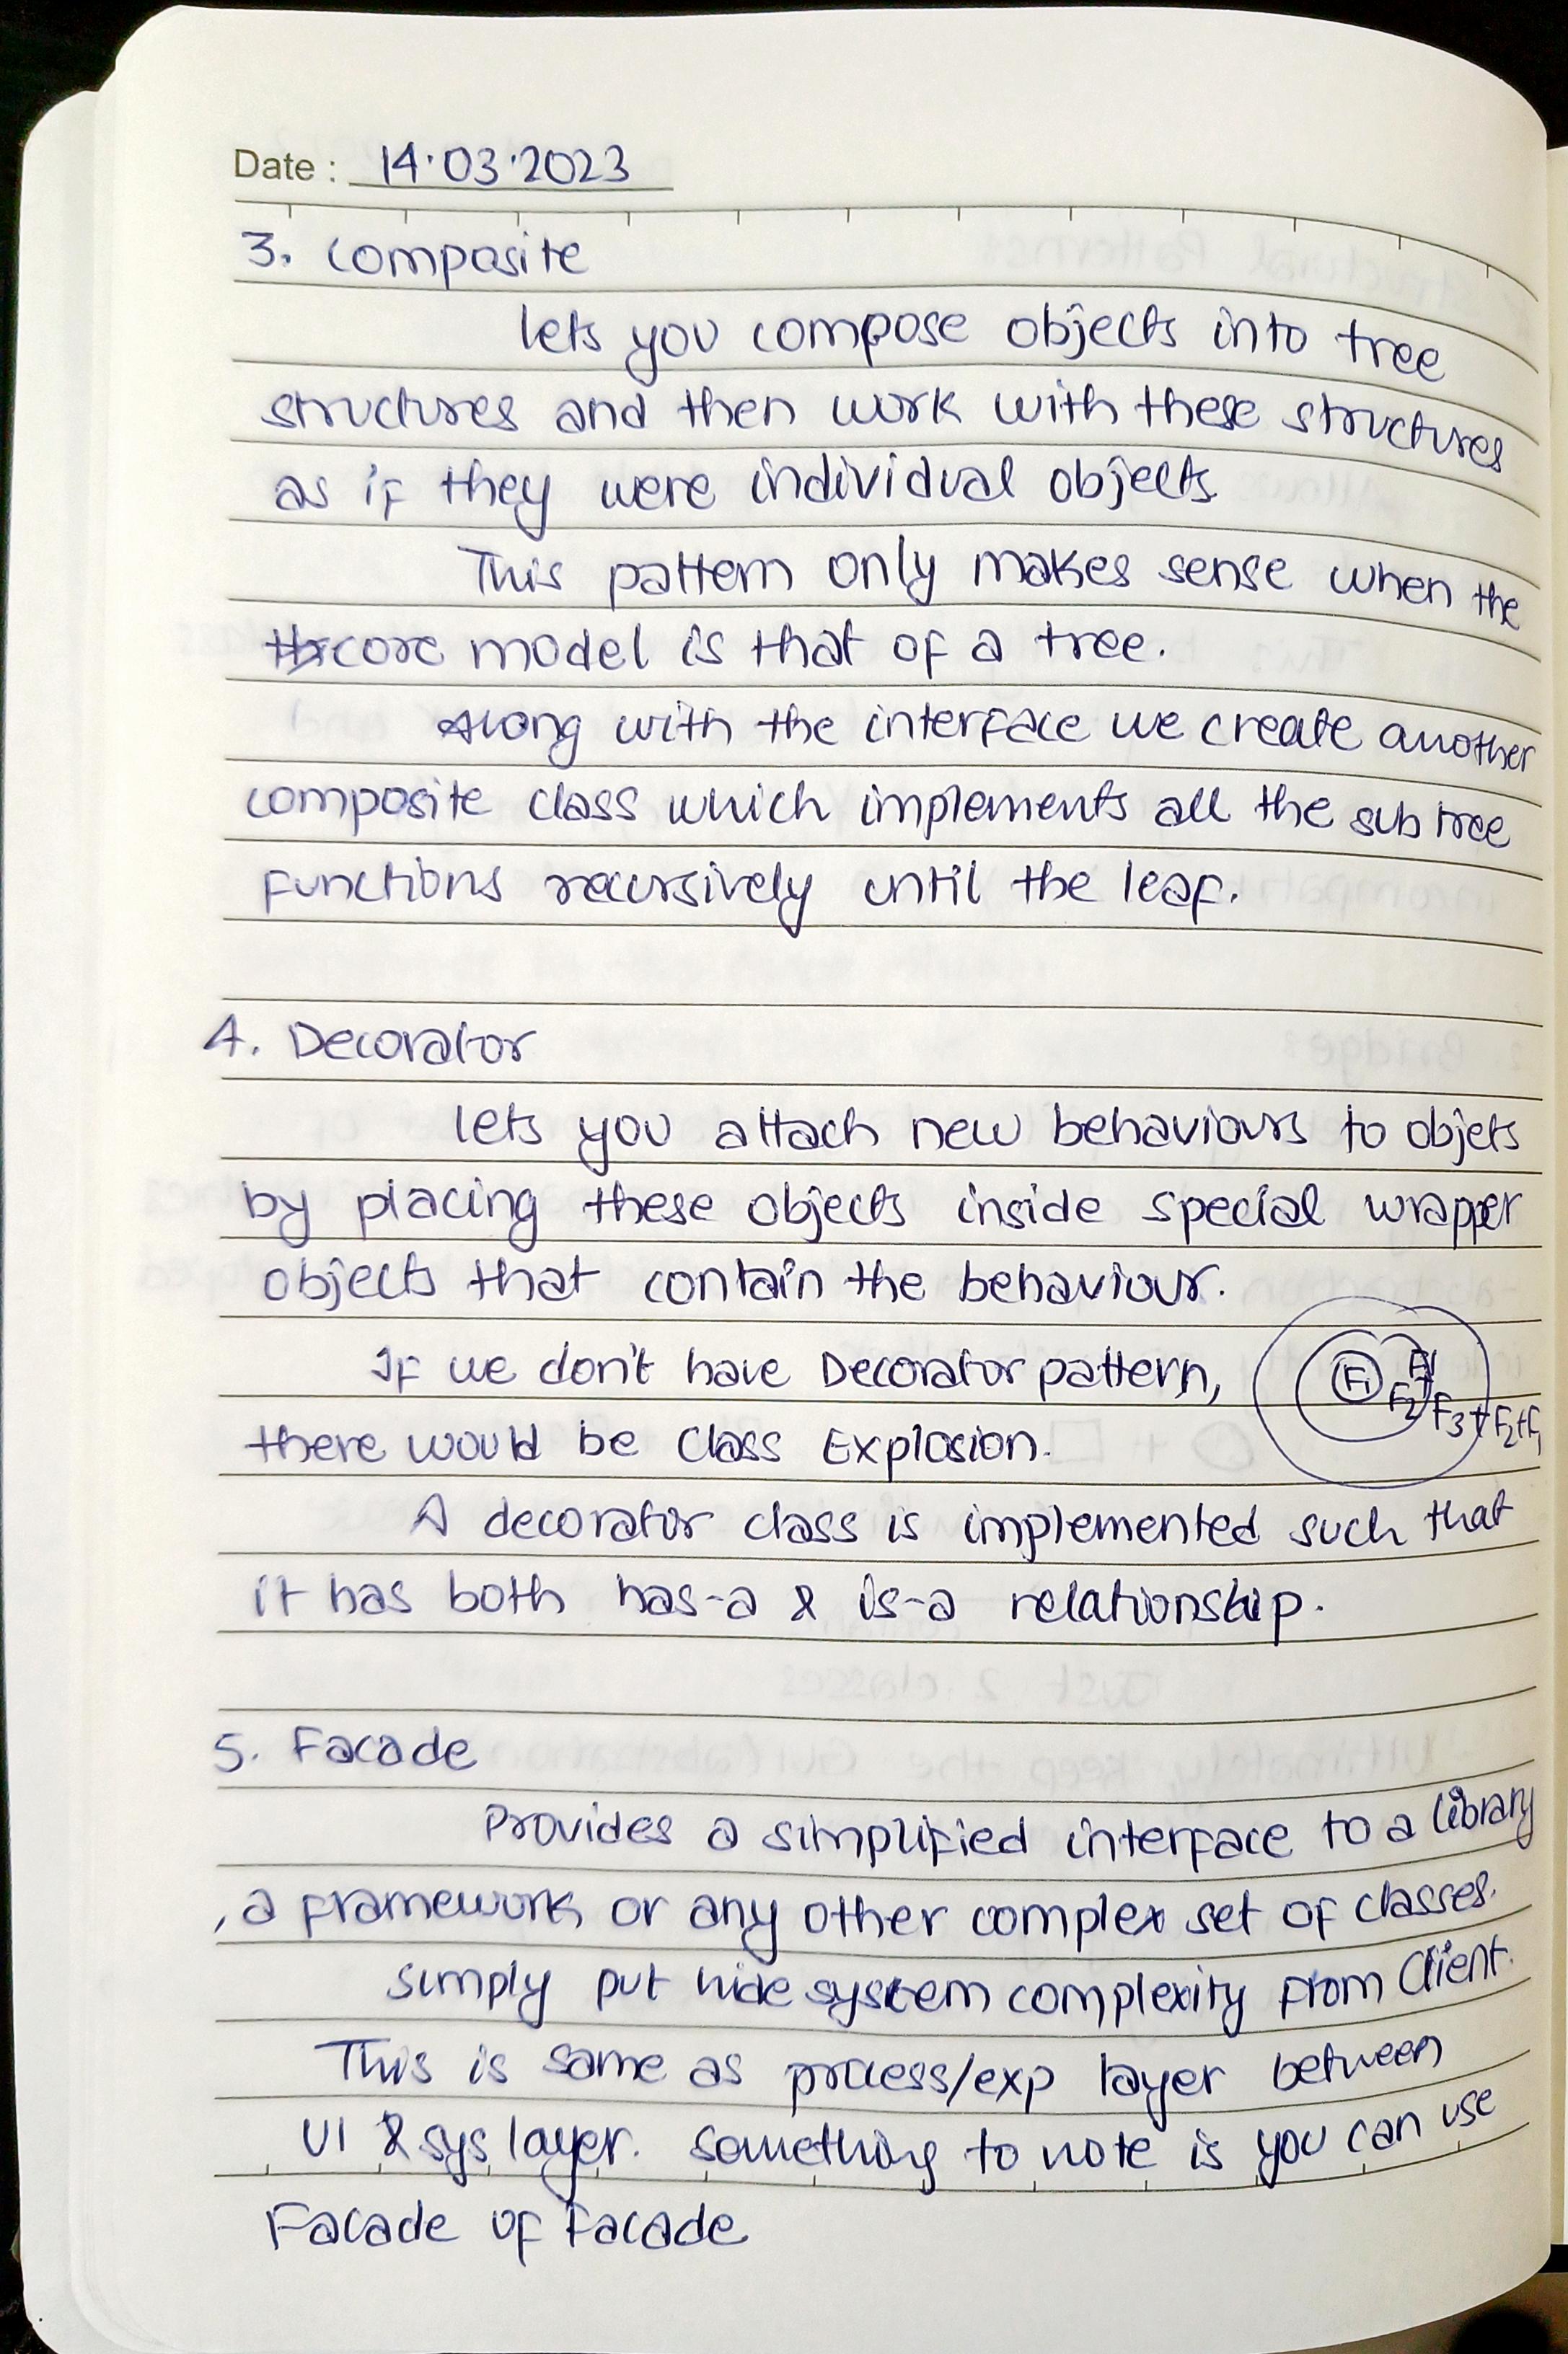 Date : 14.03.2023
3. Composite
lets you compose objects into tree
structures and then work with these structures
as if they were individual objects
This pattern only makes sense when the
core model is that of a tree.
Along with the interface we create another
composite class which implements all the sub tree
functions recursively until the leaf.
4. Decorator
lets you attach new behaviours to objets
by placing these objects inside special wrapper
objects that contain the behaviour.
If we don't have Decorator pattern,
F1 F2 F3+F2+F1
there would be Class Explosion.
A decorator class is implemented such that
it has both has-a & is-a relationship.
5. Facade
Provides a simplified interface to a library
, a framework or any other complex set of classes.
simply put hide system complexity from Client.
This is same as process/exp layer between
UI & sys layer. Something to note is you can use
Facade of Facade